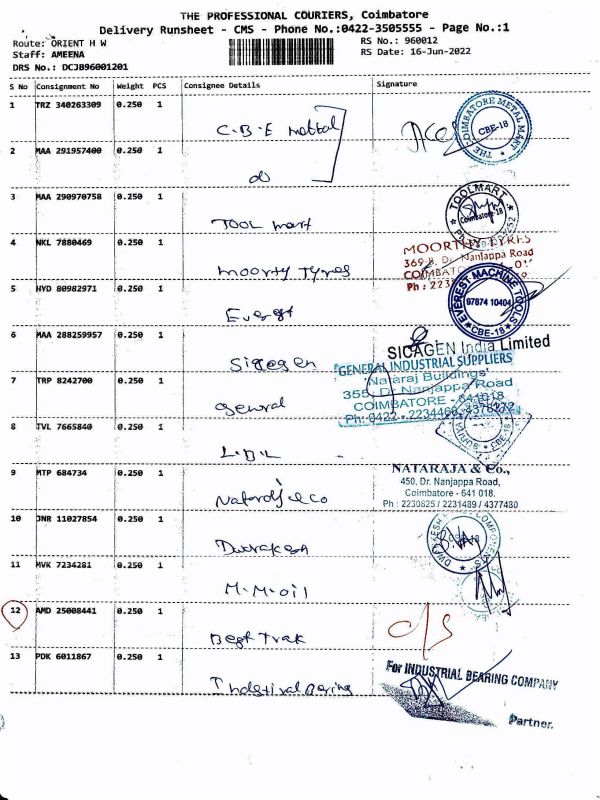 THE PROFESSIONAL COURIERS, Coimbatore
Delivery Runsheet - CMS - Phone No.:0422-3505555 - Page No.:1
Route: ORIENT H W RS No.: 960012
Staff: AMEENA RS Date: 16-Jun-2022
DRS No.: DCJ896001201
S No Consignment No Weight PCS Consignee Details Signature
1 TRZ 340263309 0.250 1
C.B.E mettal
THE COIMBATORE METAL MART
CBE-18
2 MAA 291957400 0.250 1
do
3 MAA 290970758 0.250 1
TOOL mart
TOOLMART
Coimbatore-18
4 NKL 7880469 0.250 1
moorty Tyres
MOORTHY TYRES
369-B, Dr. Nanjappa Road
5 HYD 80982971 0.250 1
Everest
EVEREST MACHINE TOOLS
97874 10404
CBE-18
6 MAA 288259957 0.250 1
Sicagen
SICAGEN India Limited
7 TRP 8242700 0.250 1
General
GENERAL INDUSTRIAL SUPPLIERS
'Nataraj Buildings'
355, Dr. Nanjappa Road
COIMBATORE - 641018
8 TVL 7665840 0.250 1
L.B.L
CBE-18
9 MTP 684734 0.250 1
Nataraj & co
NATARAJA & Co.,
450, Dr. Nanjappa Road,
Coimbatore - 641 018.
Ph : 2230825 / 2231489 / 4377480
10 JNR 11027854 0.250 1
Dwarakesh
11 MVK 7234281 0.250 1
M.M.oil
12 AMD 25008441 0.250 1
Best Trak
13 PDK 6011867 0.250 1
Indstiral Bering
For INDUSTRIAL BEARING COMPANY
Partner.